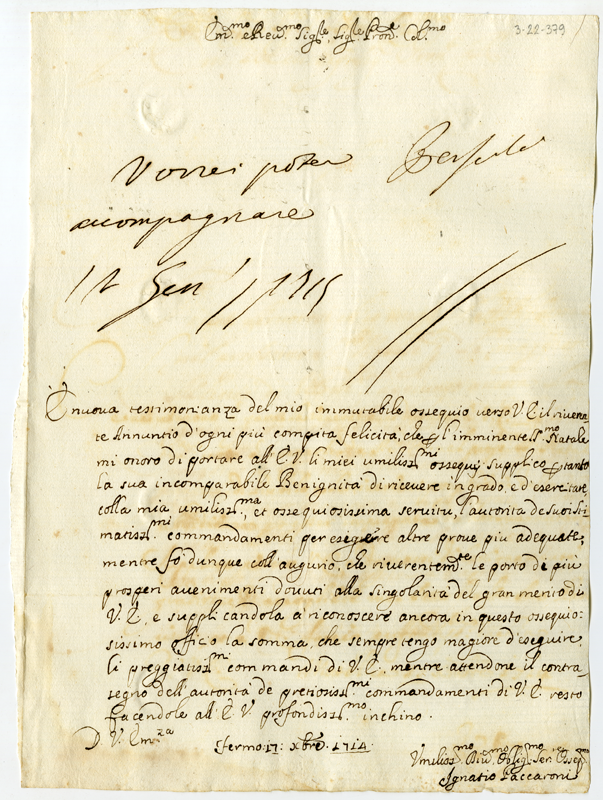 Em.mo e Rev.mo Sig.re Sig.re Pron.e Col.mo
3-22-379
Vorrei poter
acompagnare
12 Gen
È nuova testimonianza del mio immutabile ossequio verso V. E. il riveren
te Annuntio d'ogni più compita felicità, che p l'imminente S.mo Natale
mi onoro di portare all'E. V. li miei umiliss.mi ossequj supplico p tanto
la sua incomparabile Benignità di ricevere in grado, e d'esercitare
colla mia umiliss.ma, et ossequiosissima servitù, l'autorità de suoi sti
matiss.mi commandamenti per esigere altre prove più adequate,
mentre fò dunque coll'augurio, che riverentem.te le porto di più
prosperi avenimenti dovuti alla singolarità del gran merito di
V. E. e supplicandola a riconoscere ancora in questo ossequio-
sissimo officio la somma, che sempre tengo magiore d'eseguire
li preggiatiss.mi commandi di V. E. mentre attendone il contra
segno dell'autorità de pretiosiss.mi commandamenti di V. E. resto
facendole all'E. V. profondiss.mo inchino.
D. V. Em.za
Fermo 17: xbre 1714.
Umiliss.mo Div.mo Oblig.mo Ser. Osseq.mo
Ignatio Paccaroni